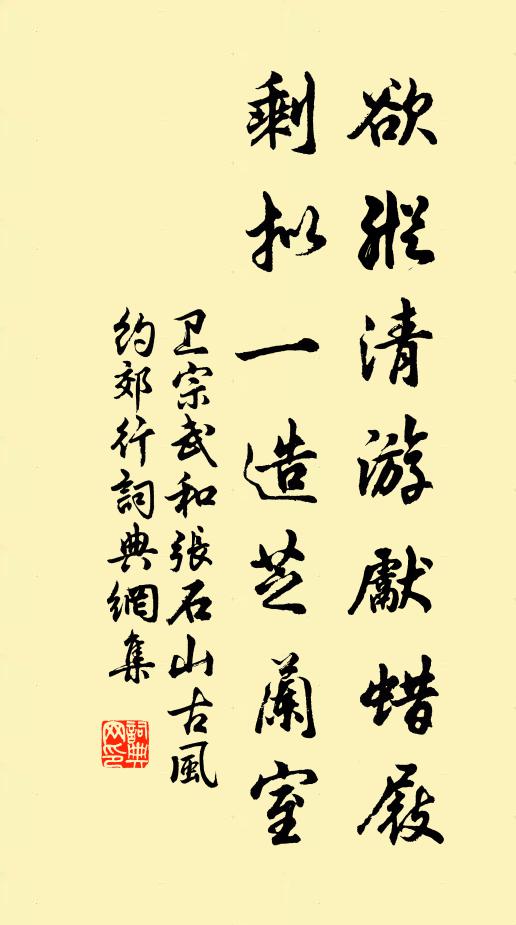 欲縱清游獻蜡屐
剩拟一造芝蘭室
卫宗武和張石山古風
約郊行詞典網集
詞典網印